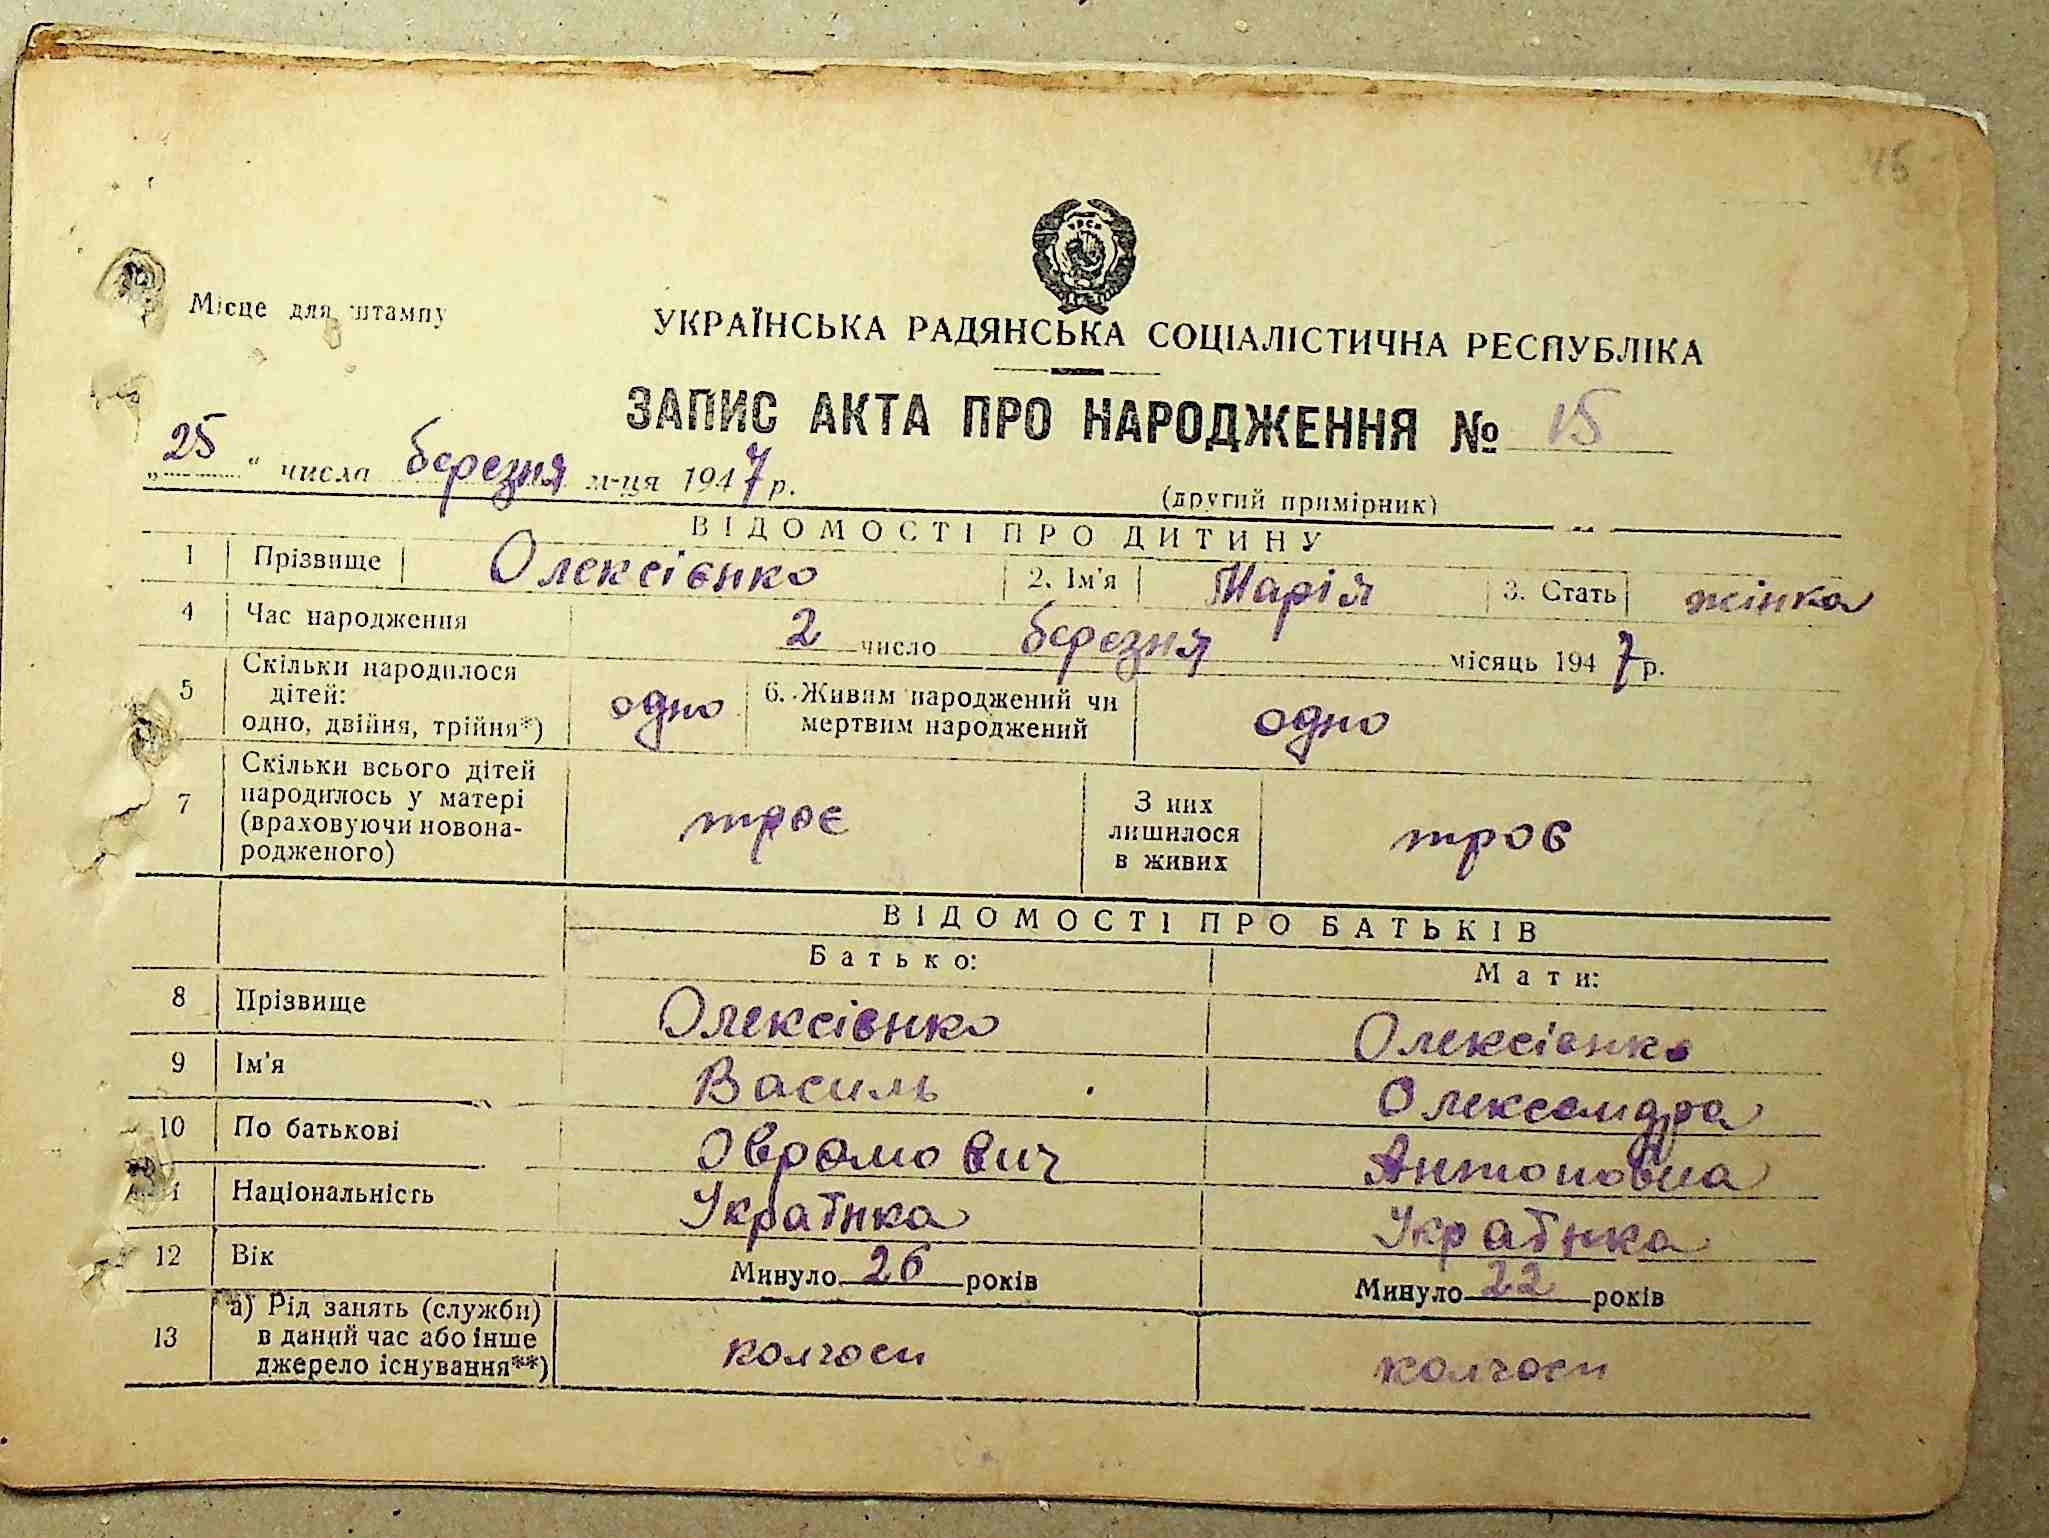 45
УРСР
Місце для штампу
УКРАЇНСЬКА РАДЯНСЬКА СОЦІАЛІСТИЧНА РЕСПУБЛІКА
ЗАПИС АКТА ПРО НАРОДЖЕННЯ № 15
„25“ числа березня м-ця 1947 р.
(другий примірник)
ВІДОМОСТІ ПРО ДИТИНУ
1 Прізвище Олексієнко 2. Ім'я Марія 3. Стать жінка
4 Час народження 2 число березня місяць 1947 р.
5 Скільки народилося дітей: одно, двійня, трійня*) одно 6. Живим народжений чи мертвим народжений одно
7 Скільки всього дітей народилось у матері (враховуючи новонародженого) троє З них лишилося в живих троє
ВІДОМОСТІ ПРО БАТЬКІВ
Батько: Мати:
8 Прізвище Олексієнко Олексієнко
9 Ім'я Василь Олександра
10 По батькові Оврамович Антоновна
11 Національність Українка Українка
12 Вік Минуло 26 років Минуло 22 років
13 а) Рід занять (служби) в даний час або інше джерело існування**) колгосп колгосп